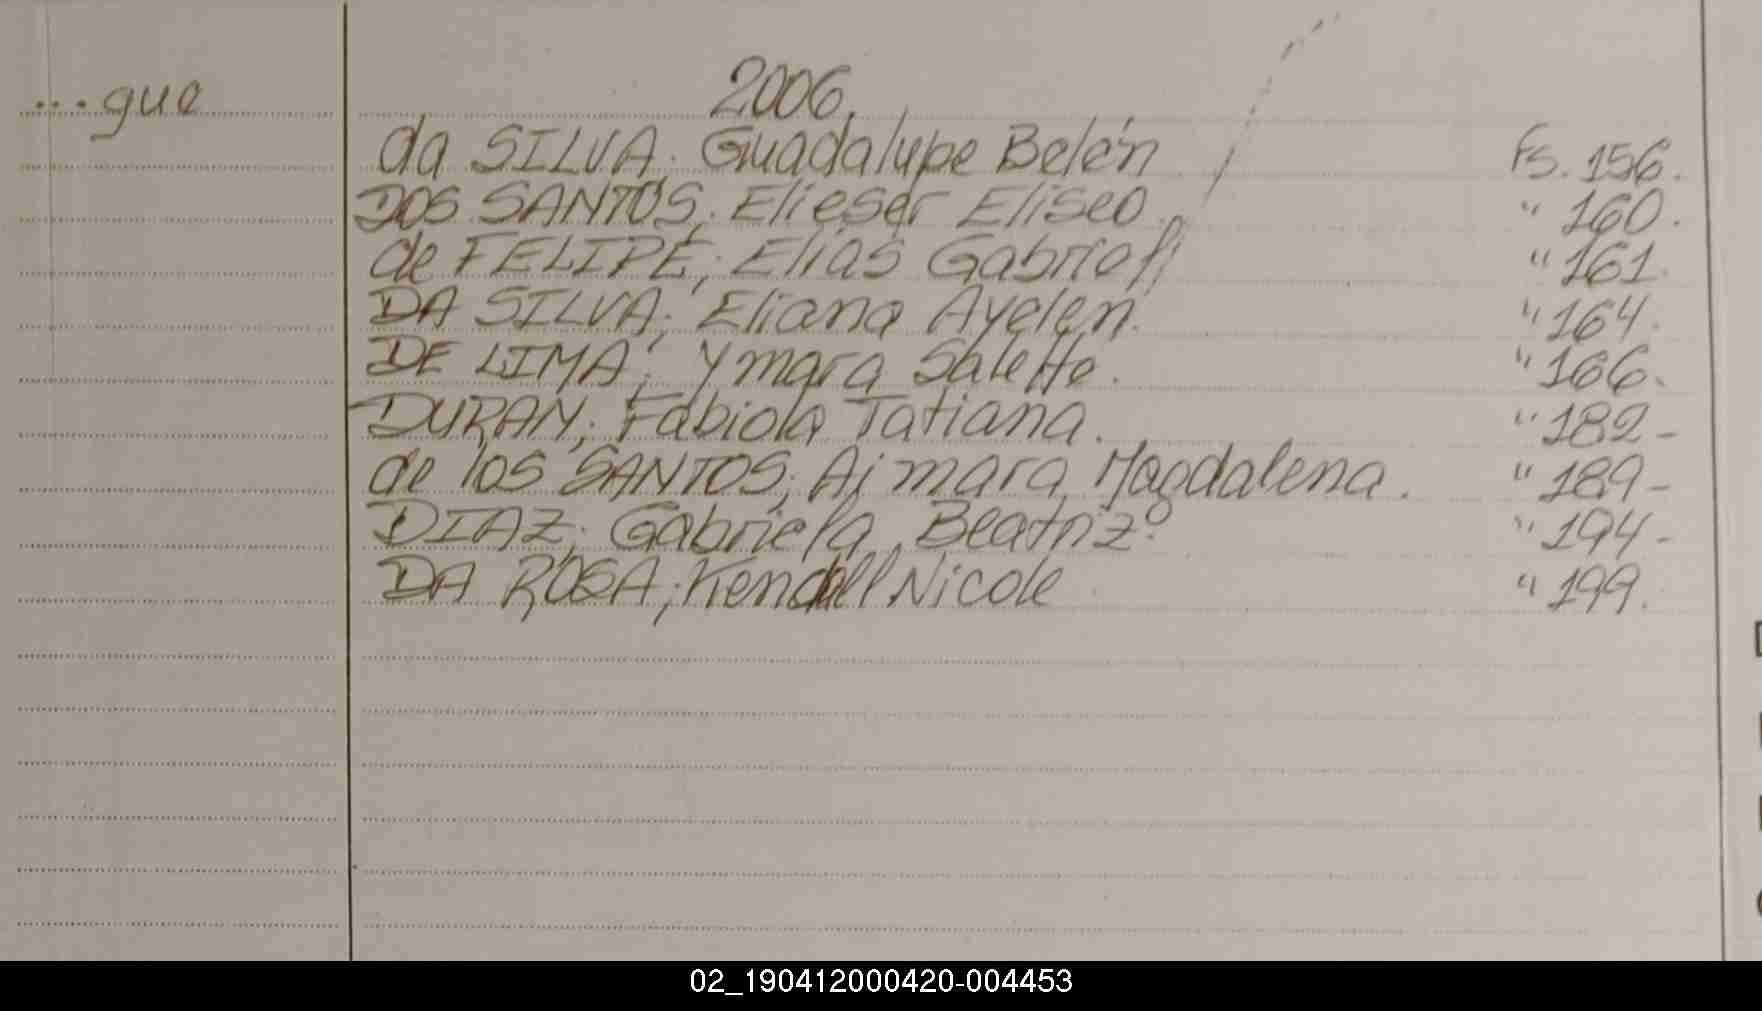 ...gue
2006.
da SILVA; Guadalupe Belén Fs. 156.
DOS SANTOS; Elieser Eliseo. " 160.
de FELIPE; Elias Gabriel; " 161.
DA SILVA; Eliana Ayelen. " 164.
DE LIMA; Ymara Salette. " 166.
DURAN; Fabiola Tatiana. " 182-
de los SANTOS; Aimara Magdalena. " 189-
DIAZ; Gabriela Beatriz. " 194-
DA ROSA; Kendall Nicole " 199.
02_190412000420-004453